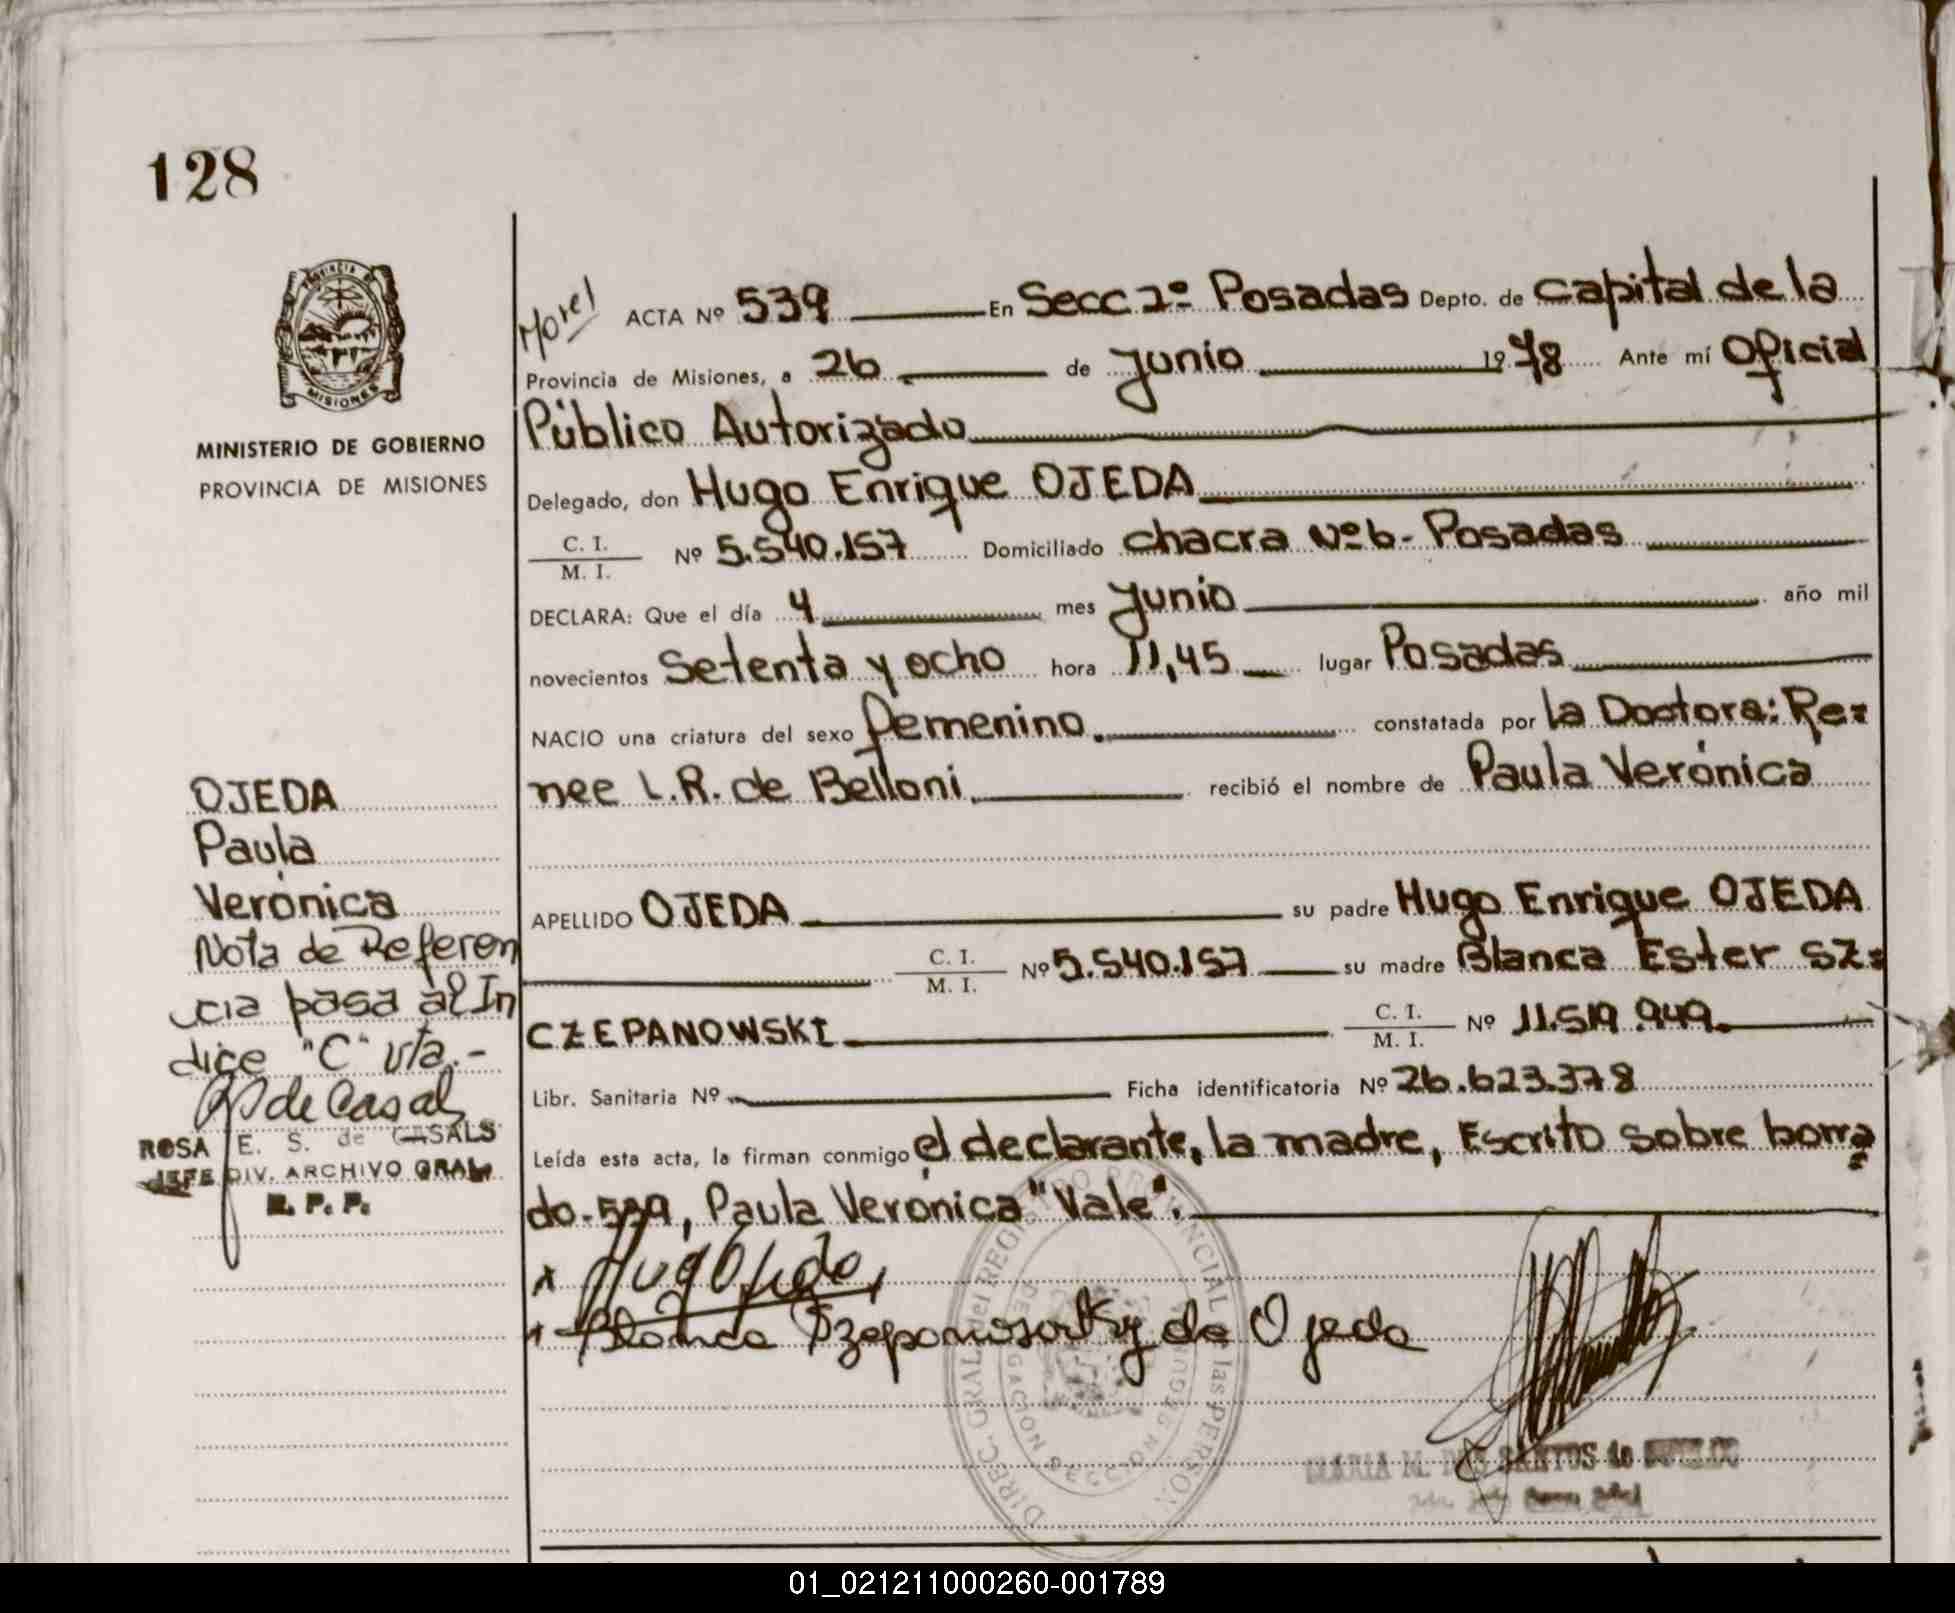 128
PROVINCIA DE
MISIONES
MINISTERIO DE GOBIERNO
PROVINCIA DE MISIONES
Morel
ACTA Nº 539 En Secc 2º Posadas Depto. de Capital de la
Provincia de Misiones, a 26 de Junio 1978 Ante mí Oficial
Público Autorizado
Delegado, don Hugo Enrique OJEDA
C. I.
M. I. Nº 5.540.157 Domiciliado chacra Nº6- Posadas
DECLARA: Que el día 4 mes Junio año mil
novecientos Setenta y ocho hora 11,45 lugar Posadas
NACIO una criatura del sexo femenino. constatada por la Doctora: Re=
nee L.R. de Belloni. recibió el nombre de Paula Verónica
APELLIDO OJEDA su padre Hugo Enrique OJEDA
C. I.
M. I. Nº 5.540.157 su madre Blanca Ester SZ=
CZEPANOWSKI C. I.
M. I. Nº 11.519.949.
Libr. Sanitaria Nº Ficha identificatoria Nº 26.623.378
Leída esta acta, la firman conmigo el declarante, la madre, Escrito sobre borra
do-539, Paula Verónica "Vale".
Hugo Ojeda
Blanca Szepanwsorky de Ojeda
OJEDA
Paula
Verónica
Nota de Referen
cia pasa al In
dice "C" vta.-
de Casal
ROSA E. S. de CASALS
JEFE DIV. ARCHIVO GRAL
R. P. P.
DIREC. GRAL. del REGISTRO PROVINCIAL de las PERSON
DELEGACION SECCION SEGUNDA
MARIA M. DOS SANTOS de
01_021211000260-001789